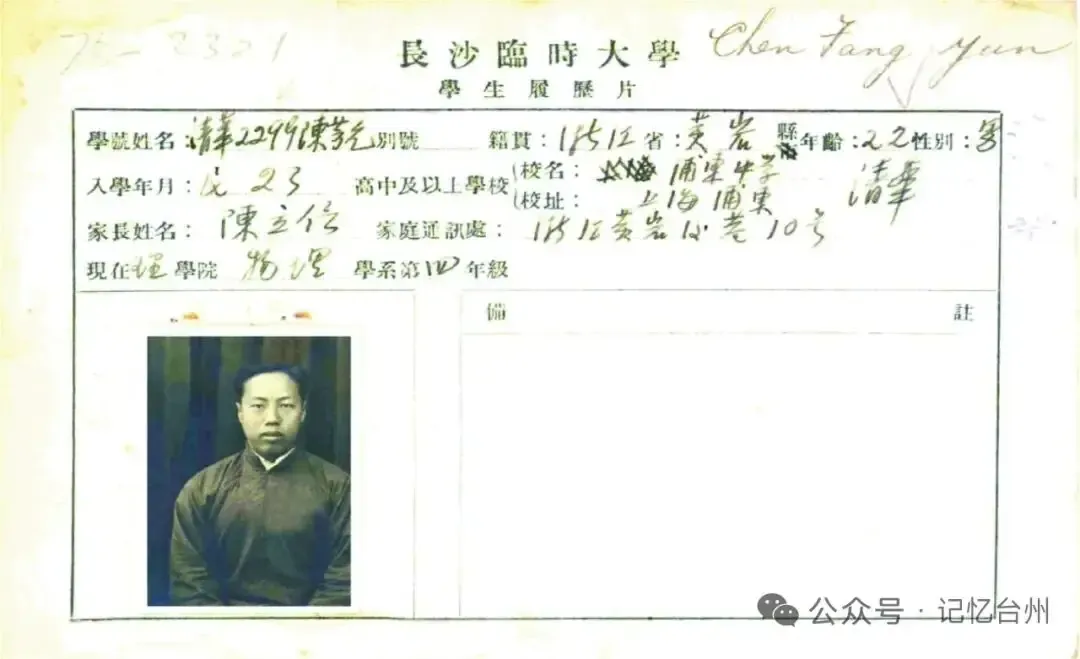 Chen Fang Yun
長沙臨時大學
學生履歷片
學號姓名:清華2299陳芳允 別號 籍貫:浙江省:黃岩縣 年齡:22 性别:男
入學年月:民23 高中及以上學校(校名: 浦東中学 清華
(校址: 上海浦東
家長姓名:陳立信 家庭通訊處:浙江黃岩 巷10号
現在理學院 物理 學系第四年級
備註
公众号·记忆台州